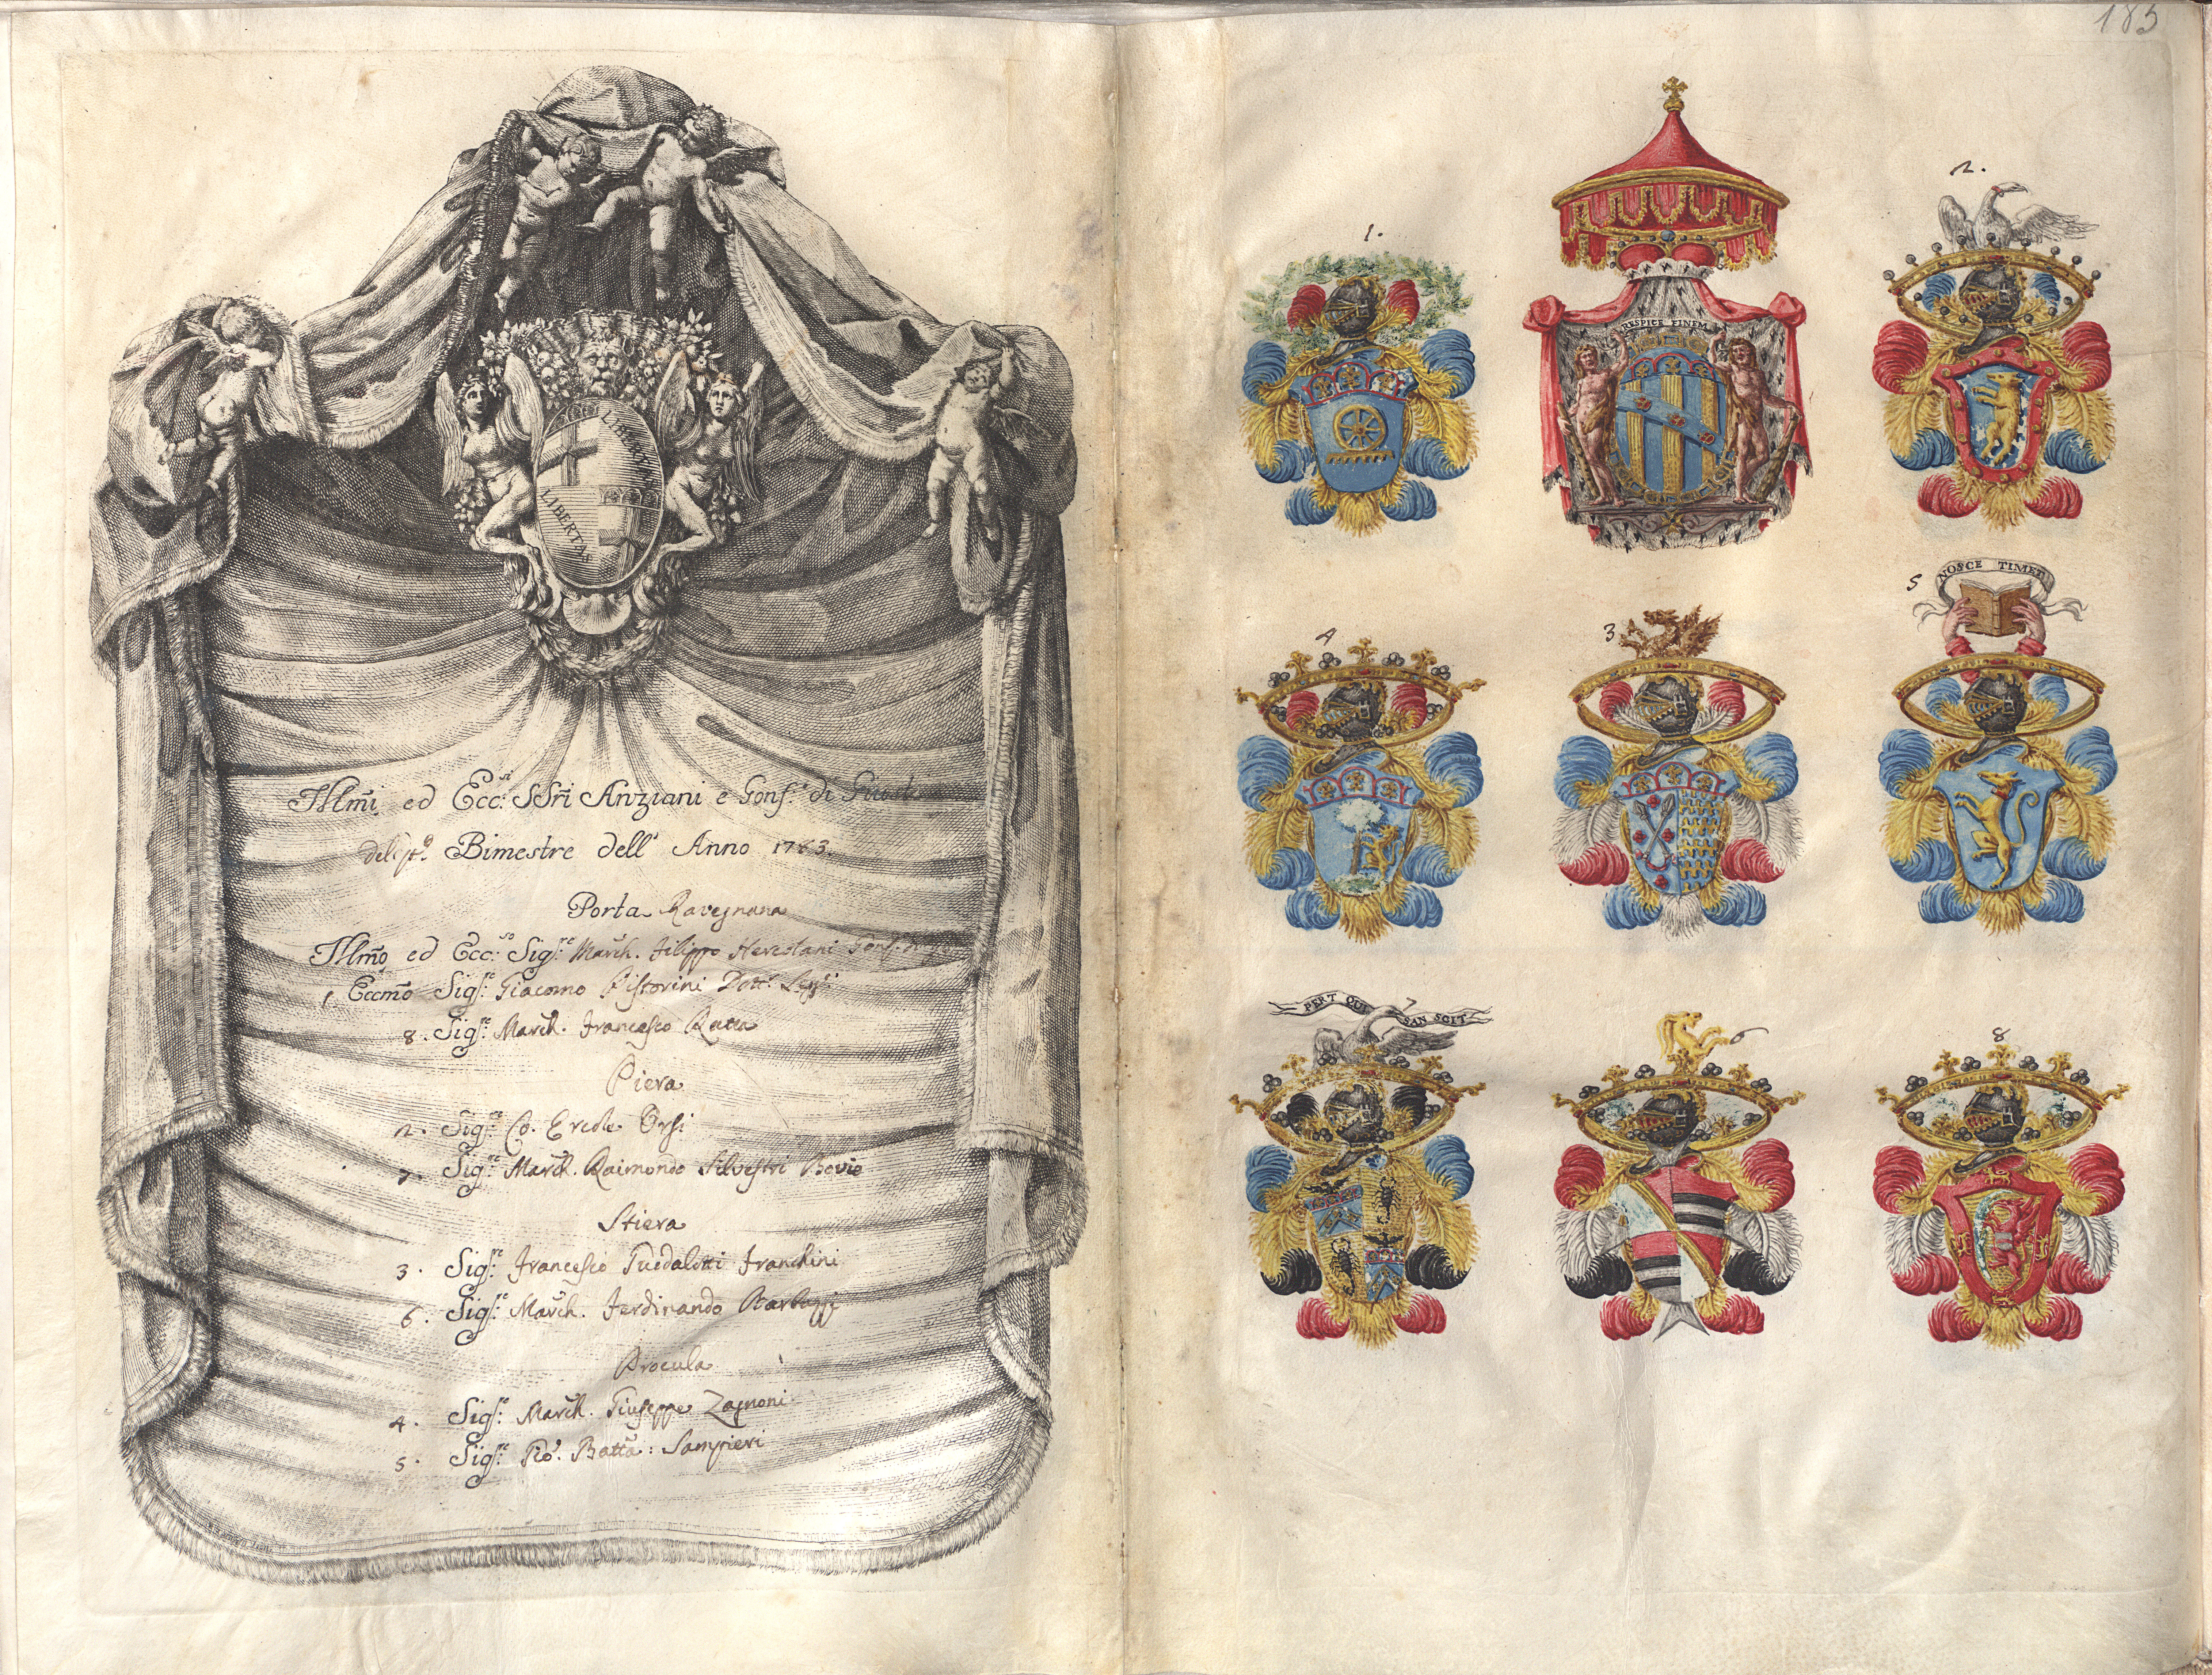 LIBERTAS
LIBERTAS
Illmi ed Ecc:si SSri Anziani e Gonf:e di
Bimestre dell' Anno 1763.
Porta Ravegnana
Illmo ed Ecc:so Sigr:e March. Filippo Hercolani Gonf.
1 Eccmo Sigr:e Giacomo Pistorini Dott:
8. Sigr:e March. Francesco Ratta
Piera
2. Sigr:e Co. Ercole Orsi
7. Sigr:e March. Raimondo Silvestri Bovio
Stiera
3. Sigr:e Francesco Guidalotti Franchini
6. Sigr:e March. Ferdinando Barbazzi
Procula
4. Sigr:e March. Giuseppe Zagnoni
5. Sigr:e Gio. Batta: Sampieri
185
1.
RESPICE FINEM
2.
4
3
5
NOSCE TIMET
7
PERT QUI SAN SCIT
8